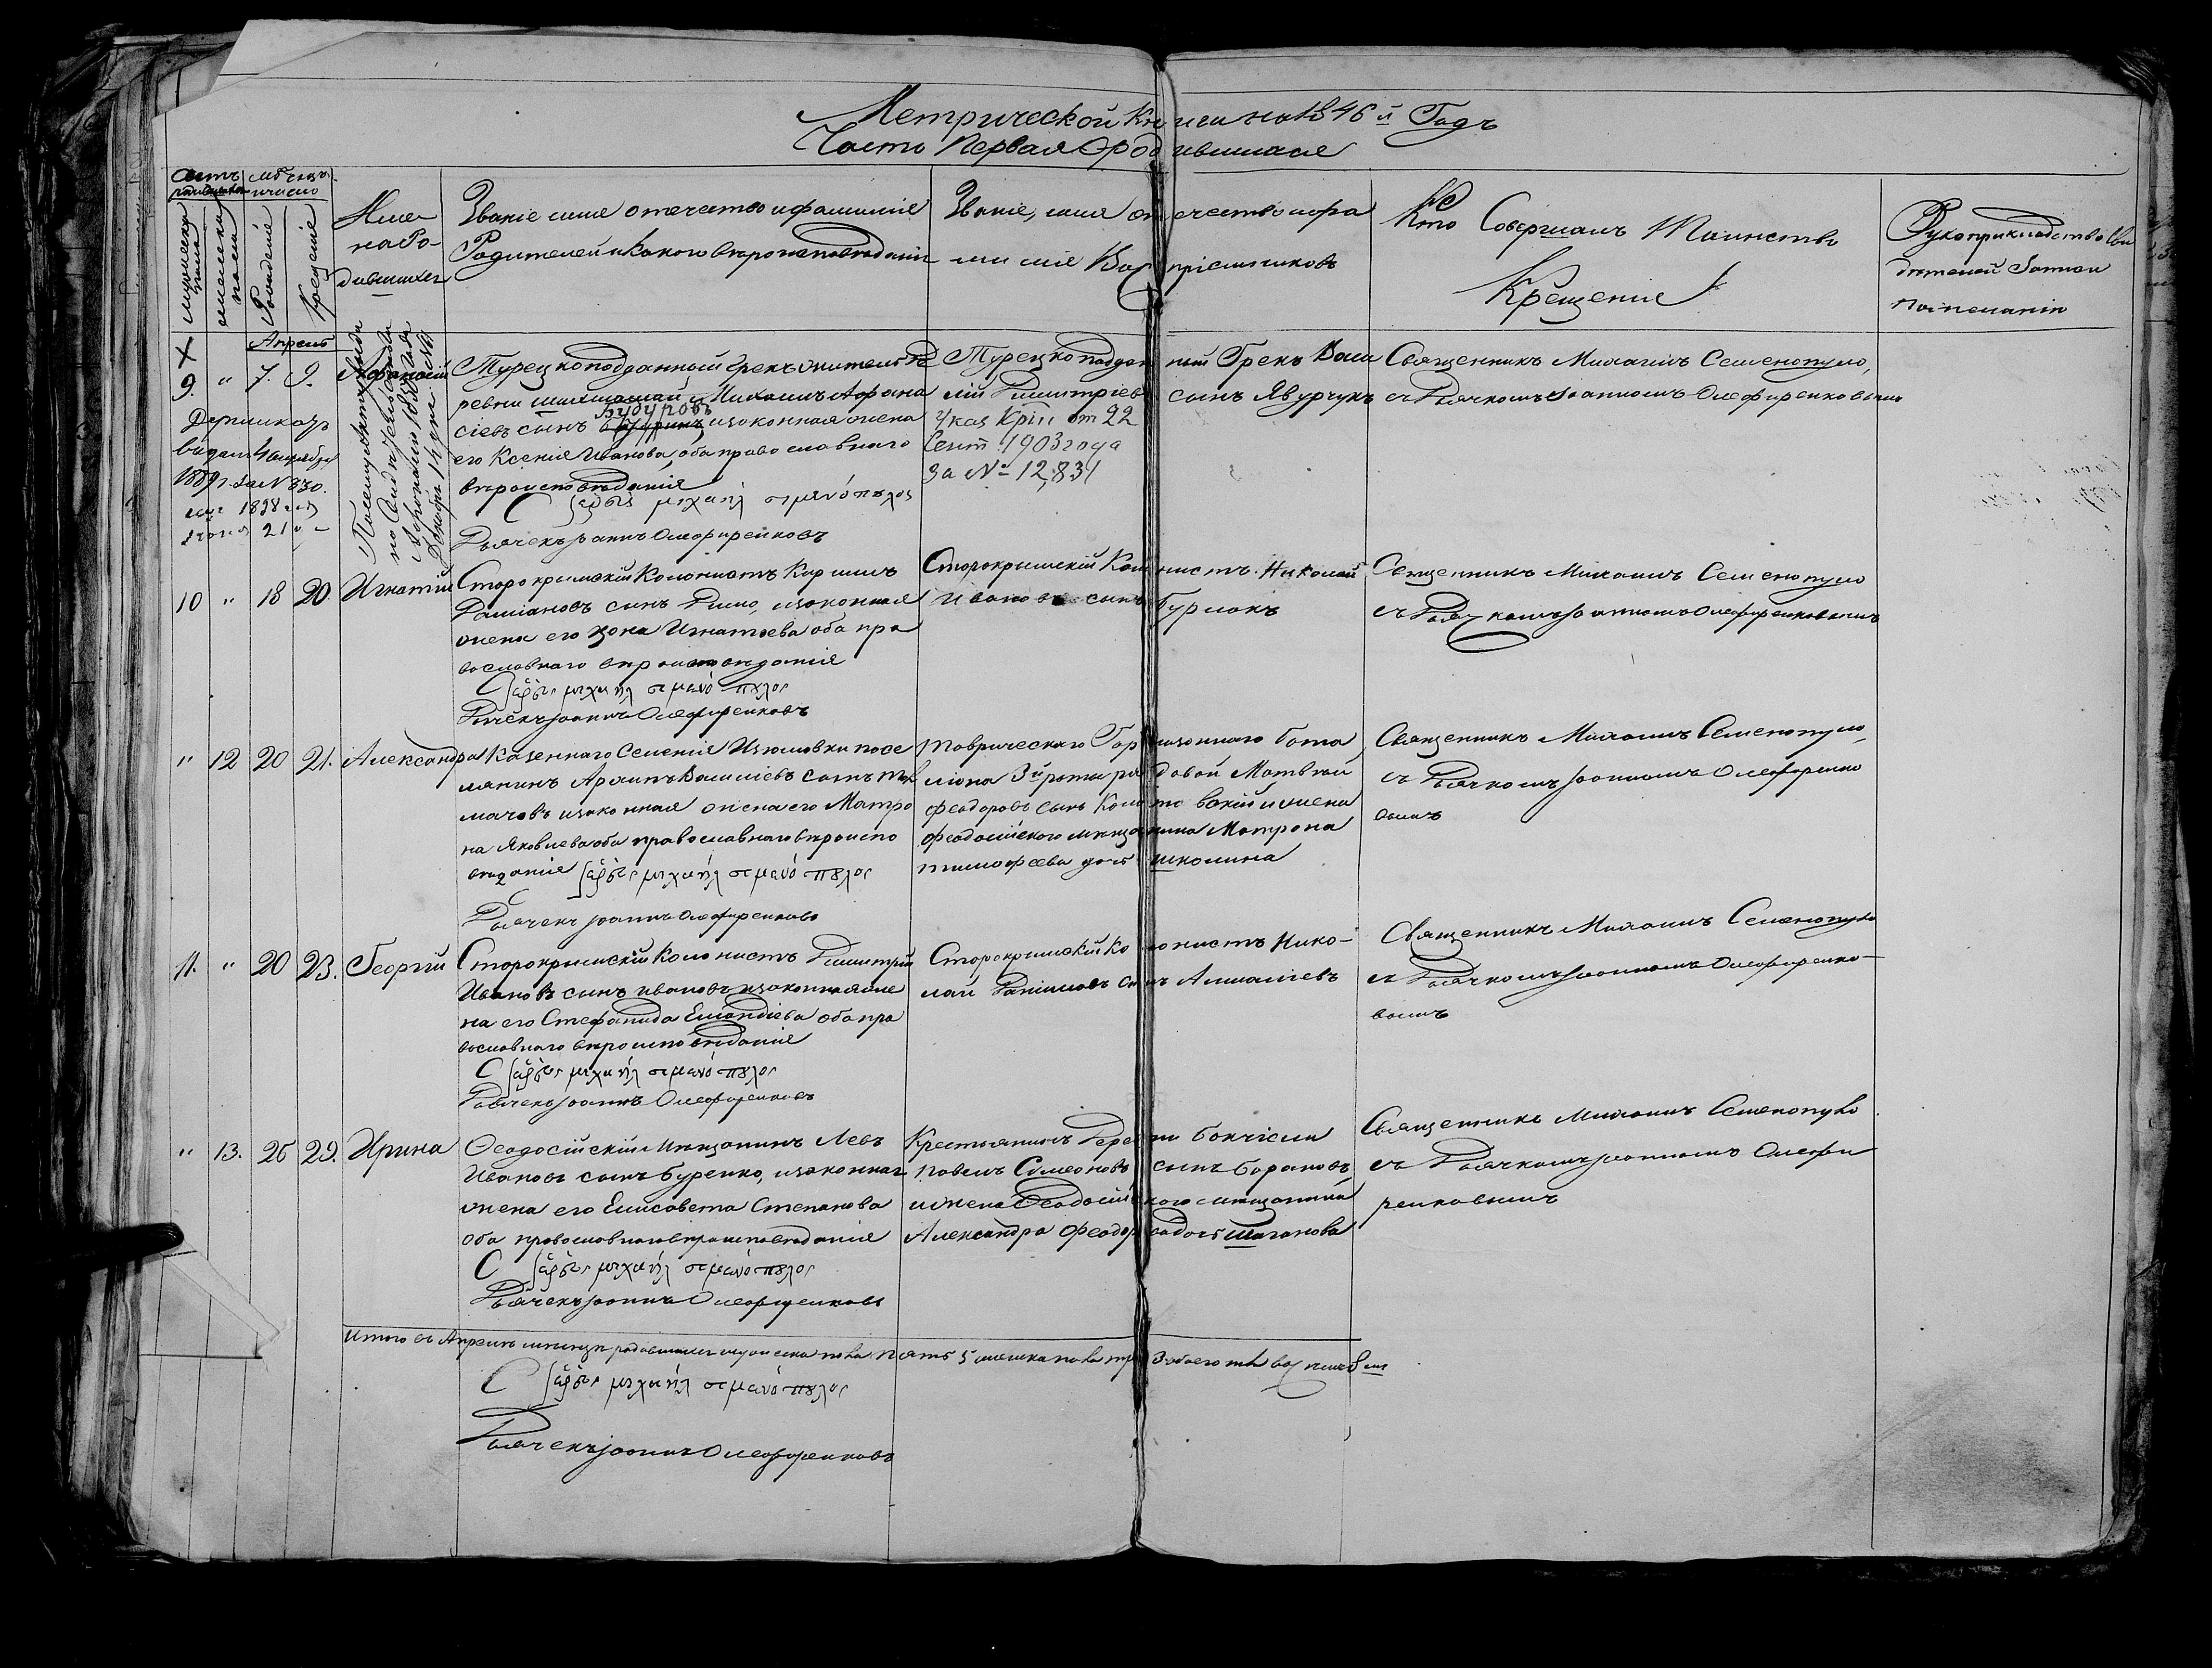 Метрической Книги на 1846й Годъ
Часть Первая О родившихся
Счетъ родившихся
мѣсяцъ и число
мужеска пола
женска пола
Рожденіе
Крещеніе
Име-
на Ро-
дившихся
Званіе имя отечество и фамилія
Родителей и какого вѣроисповѣданія
Званіе, имя отечество и фа
милія Воспріемниковъ
Кто Совершалъ Таинство
Крещенія
Рукоприкладство Сви
дѣтелей Записи
по желанію
Апрель
9. " 7. 9. Афанасій
Турецкоподданный Грекъ житель де
ревни Шахмамай Михаилъ Афана
сіевъ сынъ
Бубуровъ
и законная жена
его Ксенія Иванова, оба православнаго
вѣроисповѣданія
ἱερεὺς μιχαήλ σεμενόπουλος
Дьячекъ Іоаннъ Олефиренковъ
Турецкоподданный Грекъ Васи
лій Димитріевъ сынъ Явурчукъ
Указ Крiп от 22
Сент. 1903 года
за № 12,831
Священникъ Михаилъ Семенопуло,
съ Дьячкомъ Іоанномъ Олефиренковымъ
1889 г. за № 830.
1898
21
10 " 18 20 Игнатій
Старокрымскій Колонистъ Кирилъ
Даміановъ сынъ Димо, и законная
жена его Зоя Игнатьева оба пра
вославнаго вѣроисповѣданія
ἱερεὺς μιχαήλ σεμενόπουλος
Дьячекъ Іоаннъ Олефиренковъ
Старокрымскій Колонистъ Николай
Ивановъ сынъ Бурлакъ
Священникъ Михаилъ Семенопуло
съ Дьячкомъ Іоанномъ Олефиренковымъ
" 12 20 21. Александра
Казеннаго Селенія Изюмовки посе
лянинъ Архипъ Василіевъ сынъ Тол
мачовъ и законная жена его Матро
на Яковлева оба православнаго вѣроиспо
вѣданія ἱερεὺς μιχαήλ σεμενόπουλος
Дьячекъ Іоаннъ Олефиренковъ
Таврическаго Гарнизоннаго бата
ліона 3й роты рядовой Матвѣй
Феодоровъ сынъ и жена
феодосійского мѣщанина Матрона
тимофеева дочь
Священникъ Михаилъ Семенопуло,
съ Дьячкомъ Іоанномъ Олефиренко
вымъ
11. " 20 23. Георгій
Старокрымскій Колонистъ Димитрій
Ивановъ сынъ Ивановъ и законная же
на его Стефанида оба пра
вославнаго вѣроисповѣданія
ἱερεὺς μιχαήλ σεμενόπουλος
Дьячекъ Іоаннъ Олефиренковъ
Старокрымскій Колонистъ Нико-
лай сынъ
Священникъ Михаилъ Семенопуло
съ Дьячкомъ Іоанномъ Олефиренко-
вымъ
" 13. 26 29. Ирина
Феодосійскій Мѣщанинъ Левъ
Ивановъ сынъ Буренко, и законная
жена его Елисавета Степанова
оба православнаго вѣроисповѣданія
ἱερεὺς μιχαήλ σεμενόπουλος
Дьячекъ Іоаннъ Олефиренковъ
Крестьянинъ Деревни
Павелъ Симеоновъ сынъ Барановъ,
и жена Феодосійскаго мѣщанина
Александра Феодорова дочь
Священникъ Михаилъ Семенопуло
съ Дьячкомъ Іоанномъ Олефи
ренковымъ
Итого въ Апрелѣ мѣсяцѣ родившихся мужеска пола пять 5 женска пола три 3 обоего пола восемь 8
ἱερεὺς μιχαήλ σεμενόπουλος
Дьячекъ Іоаннъ Олефиренковъ